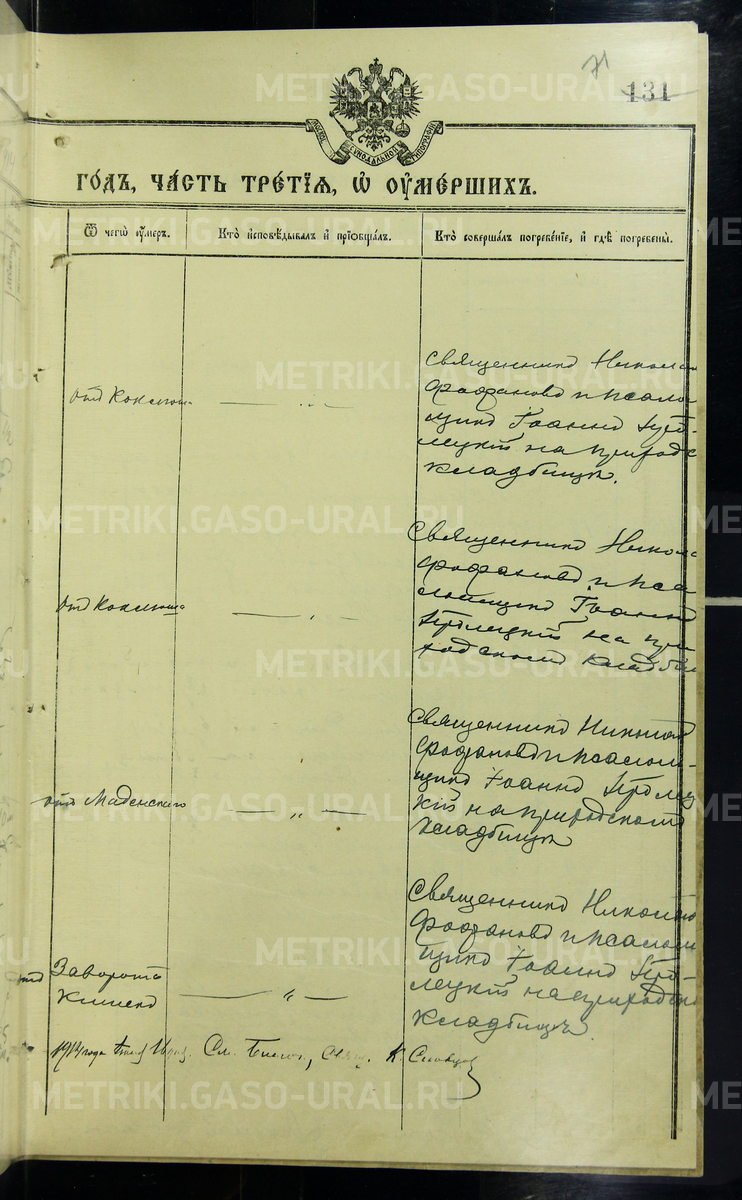 71
131
ГОДЪ, ЧАСТЬ ТРЕТІЯ, Ѡ ОУМЕРШИХЪ.
Ѿ чегѡ оумеръ.
Кто исповѣдывалъ и пріобщалъ.
Кто совершалъ погребеніе, и гдѣ погребены.
отъ Коклюша
Священникъ Никола
Фофановъ и Псалом
щикъ Іоаннъ
на приходс
кладбищѣ.
отъ Коклюша
Священникъ Никола
Фофановъ и Пса
ломщикъ Іоаннъ
на при
ходскомъ кладби
отъ Маденскаго
Священникъ Николай
Фофановъ и Псалом-
щикъ Іоаннъ
на приходскомъ
кладбищѣ
отъ Заворота
Кишекъ
Священникъ Николай
Фофановъ и Псалом
щикъ Іоаннъ
на приходско
кладбищѣ.
года
METRIKI.GASO-URAL.RU